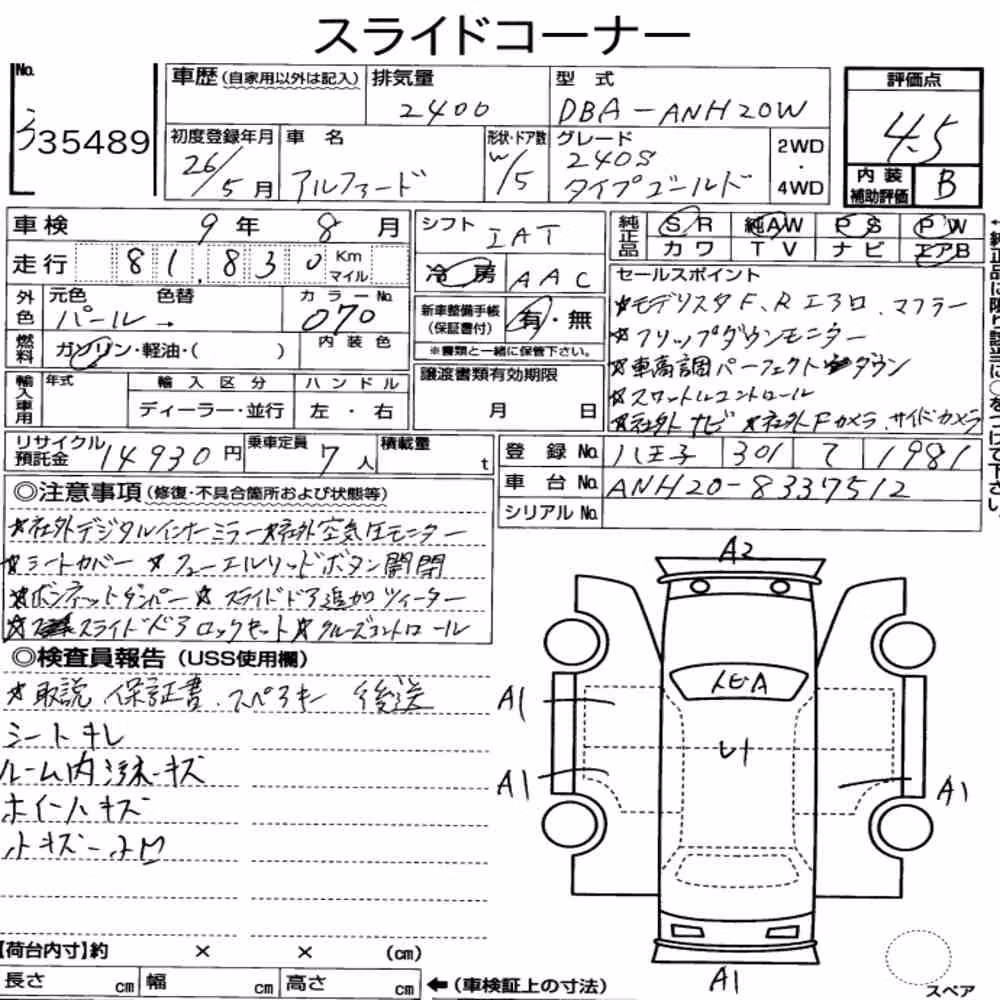 スライドコーナー
No. 335489
車歴(自家用以外は記入) 排気量 2400 型式 DBA-ANH20W
評価点 4.5
内装補助評価 B
初度登録年月 26/5月 車名 アルファード 形状・ドア数 W/5 グレード 240S タイプゴールド 2WD・4WD
車検 9年 8月
走行 81,830 Km マイル
外色 元色 パール → 色替 カラーNo. 070
燃料 ガソリン・軽油・( ) 内装色
輸入車用 年式 輸入区分 ハンドル
ディーラー・並行 左・右
シフト IAT
冷房 AAC
新車整備手帳(保証書付) 有・無
※書類と一緒に保管下さい。
譲渡書類有効期限
月 日
純正品 SR 純AW PS PW
カワ TV ナビ エアB
セールスポイント
★モデリスタF、Rエアロ、マフラー
★フリップダウンモニター
★車高調パーフェクトダウン
★スロットルコントロール
★社外ナビ ★社外Fカメラ、サイドカメラ
リサイクル預託金 14930円 乗車定員 7人 積載量 t
登録No. 八王子 301 て 1981
車台No. ANH20-8337512
シリアルNo.
◎注意事項(修復・不具合箇所および状態等)
★社外デジタルインナーミラー★社外空気圧モニター
★シートカバー ★フューエルリッドボタン開閉
★ボンネットダンパー★スライドドア追加ツィーター
★スライドドアロックセット★クルーズコントロール
◎検査員報告(USS使用欄)
★取説、保証書、スペアキー 後送
シートキレ
ルーム内汚れ・キズ
ホイールキズ
小キズ・小凹
A2
A1
A1
A1
A1
【荷台内寸】約 × × (cm)
長さ cm 幅 cm 高さ cm ←(車検証上の寸法)
スペア